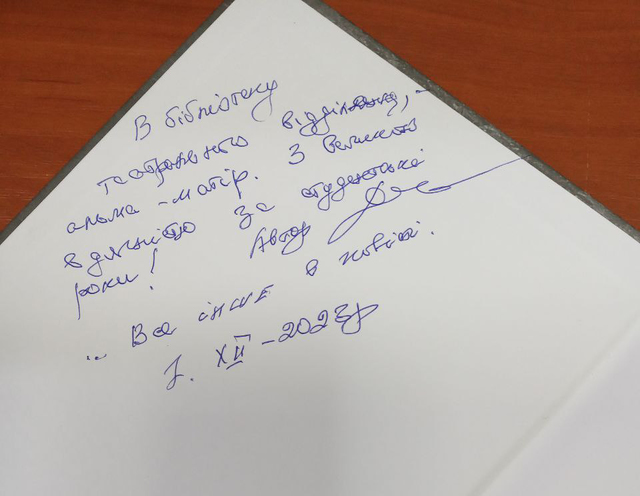 В бібліотеку
театрального відділення, -
альма-матір. З великою
вдячністю за студентські
роки! Автор
... Все інше в книзі.
1. XII - 2023р